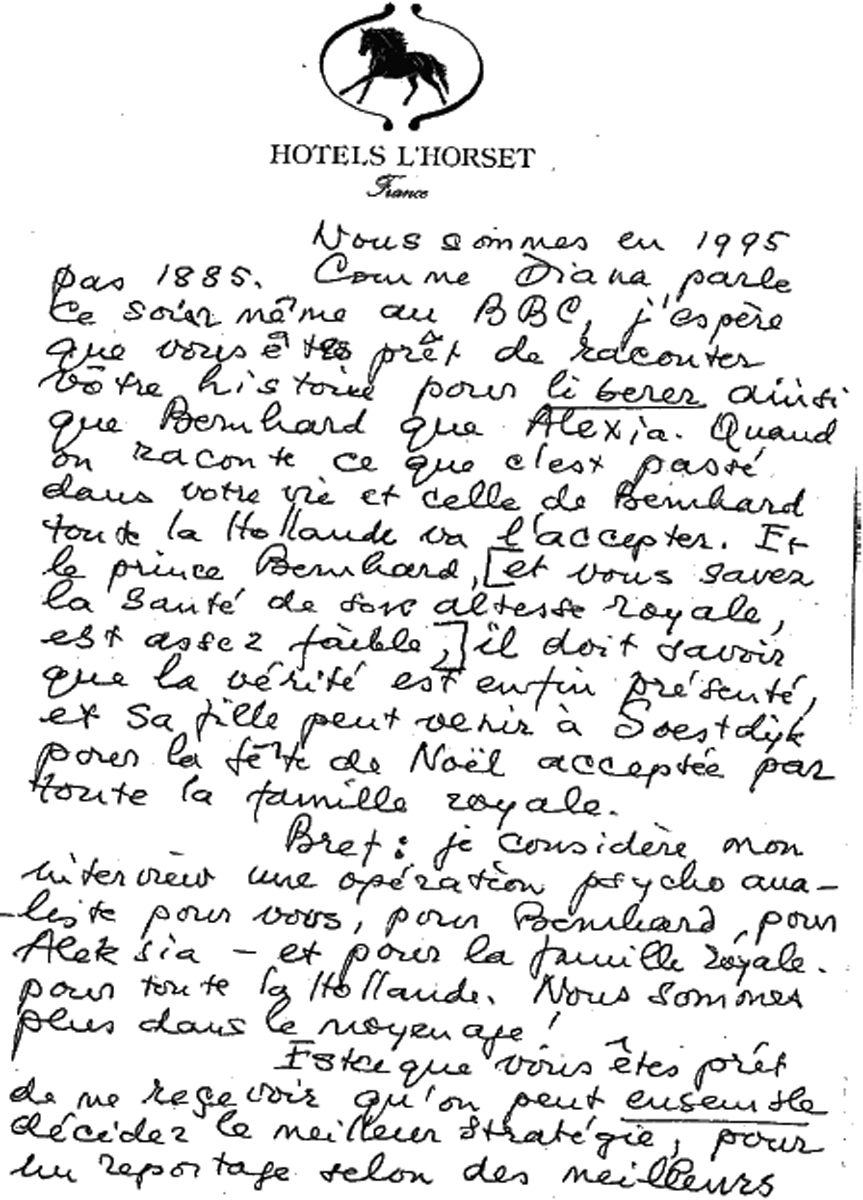 HOTELS L'HORSET
France
Nous sommes en 1995
pas 1885. Comme Diana parle
ce soir même au BBC, j'espère
que vous êtes prêt de raconter
vôtre histoire pour liberer ainsi
que Bernhard que Alexia. Quand
on raconte ce que c'est passé
dans votre vie et celle de Bernhard
toute la Hollande va l'accepter. Et
le prince Bernhard, [et vous savez
la santé de son altesse royale,
est assez faible,] il doit savoir
que la vérité est enfin présenté,
et sa fille peut venir à Soestdijk
pour la fête de Noël acceptée par
toute la famille royale.
Bref: je considère mon
interview une opération psycho ana-
-liste pour vous, pour Bernhard, pour
Aleksia - et pour la famille royale.
pour toute la Hollande. Nous sommes
plus dans le moyenage!
Estceque vous êtes prêt
de me reçevoir qu'on peut ensemble
décidez le meilleur stratégie, pour
un reportage selon des meilleurs